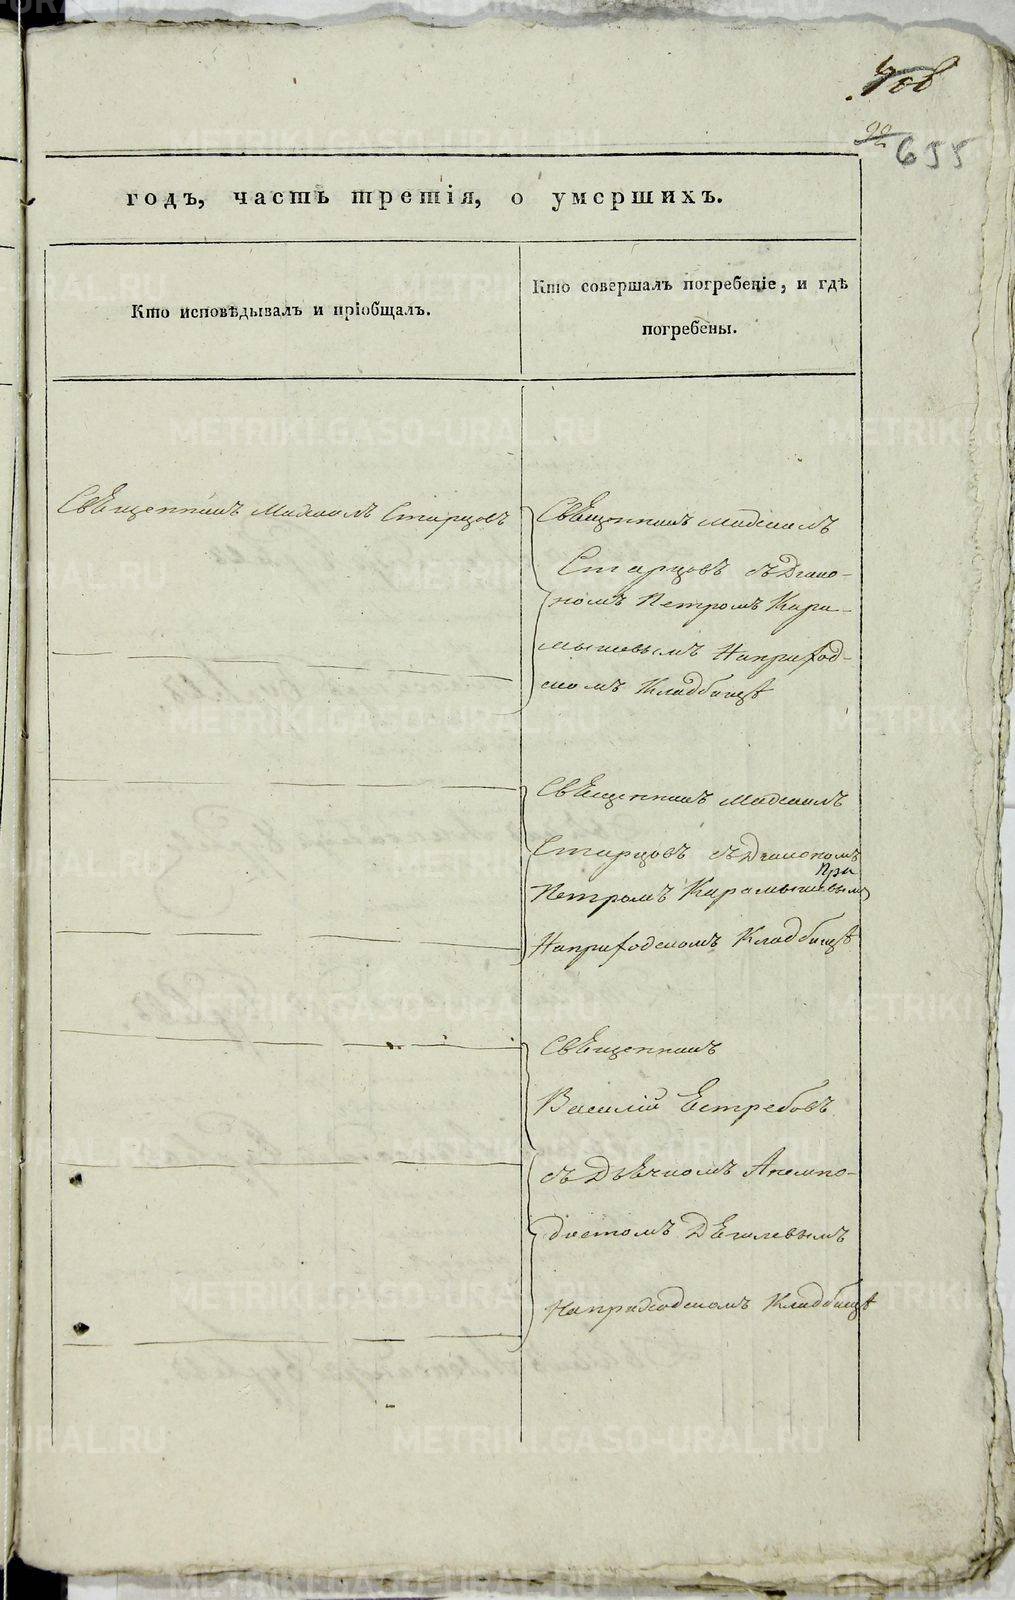 708
90
655
годъ, часть третія, о умершихъ.
Кто исповѣдывалъ и пріобщалъ.
Кто совершалъ погребеніе, и гдѣ
погребены.
Священникъ Михаилъ Старцовъ
Священникъ Михаилъ
Старцовъ съ Дьяко-
номъ Петромъ Кара-
мышевымъ На приход-
скомъ Кладбищѣ
Священникъ Михаилъ
Старцовъ съ Дьякономъ
при
Петромъ Карамышевымъ
На приходскомъ Кладбищѣ
Священникъ
Василій Естребовъ
съ Дьячкомъ Анемпо-
дистомъ
На приходскомъ Кладбищѣ
METRIKI.GASO-URAL.RU